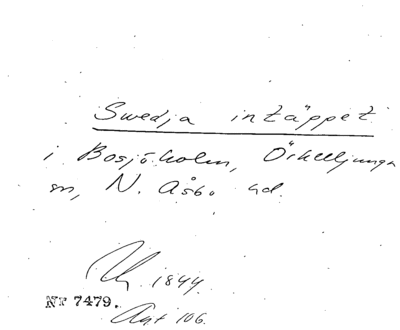 Swedja intäppet
i Bosjöholm, Örkelljunga
sn, N. Åsbo hd.
1844
Nr 7479.
Akt 106.